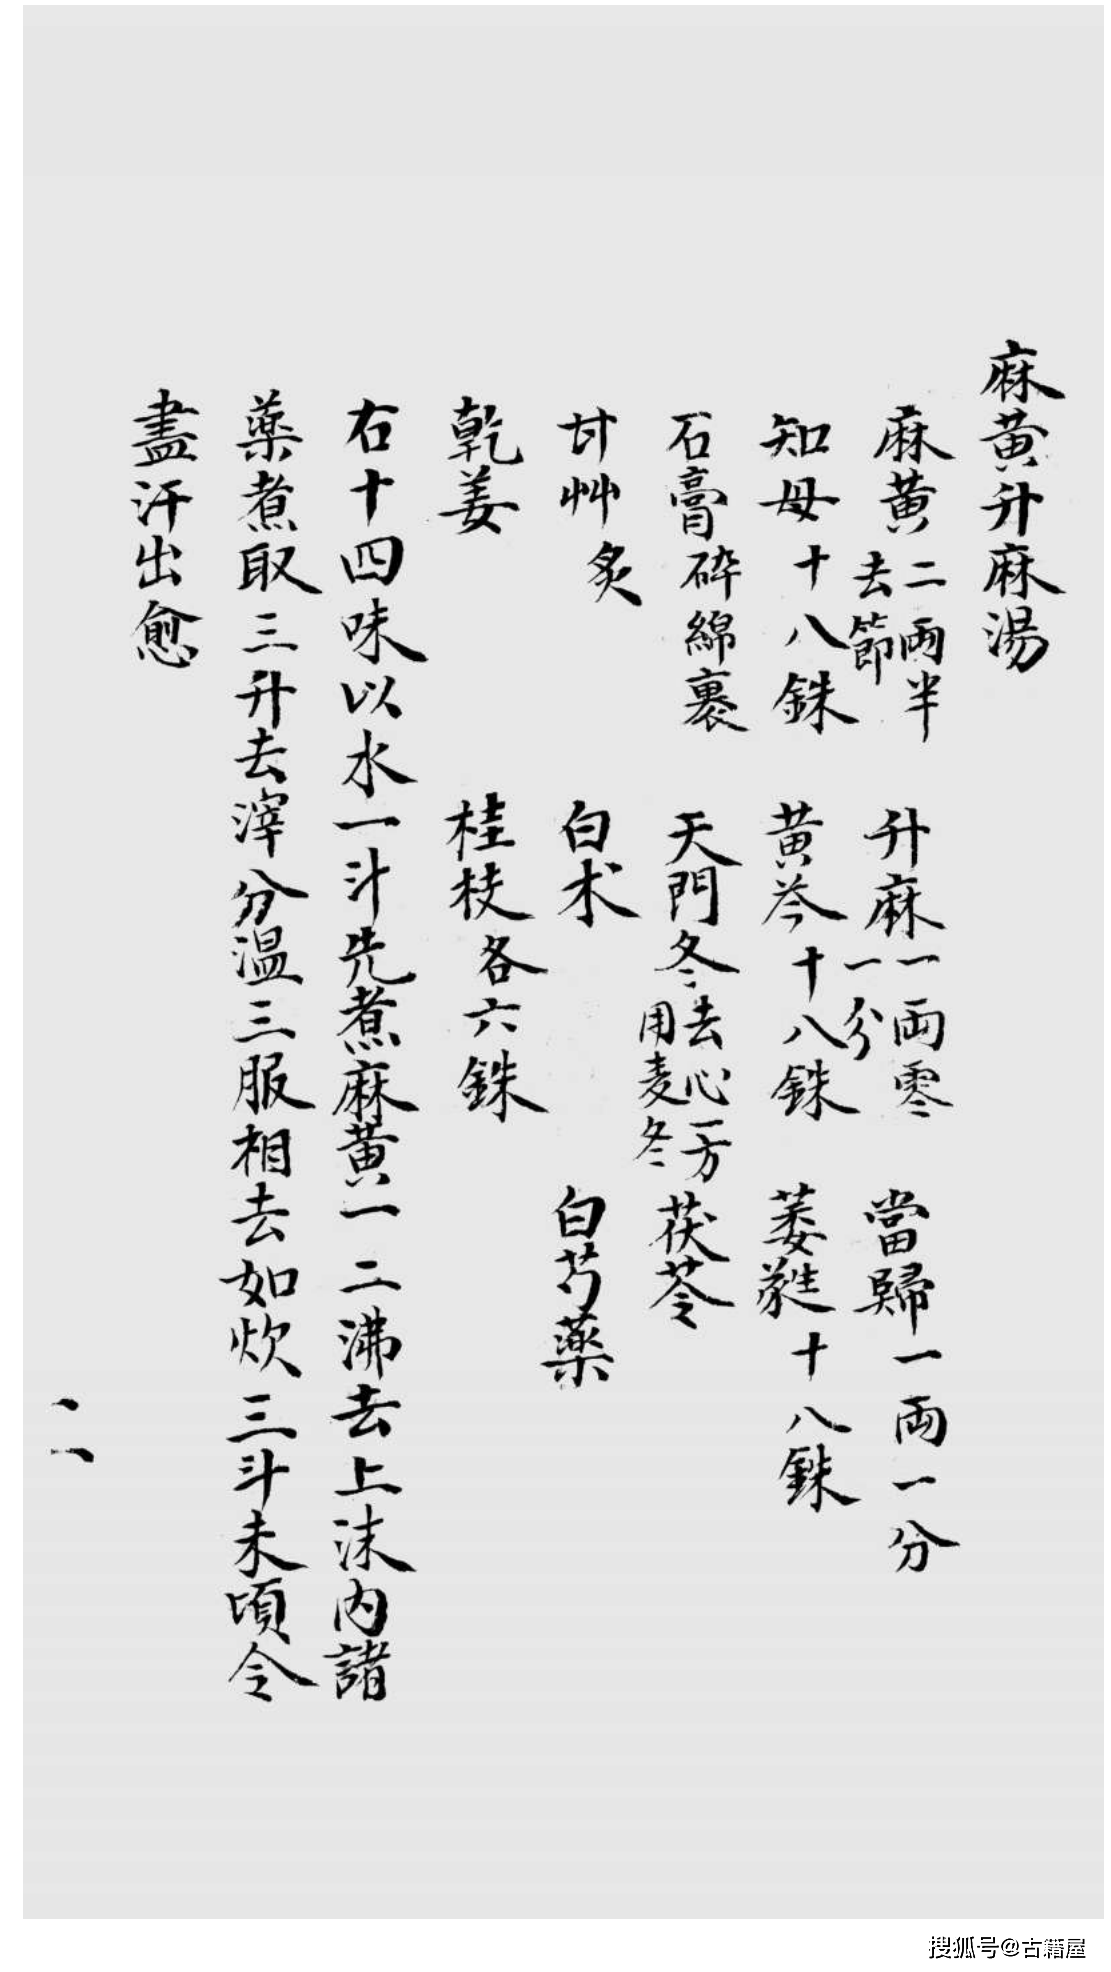 麻黄升麻湯
麻黄二兩半去節　升麻一兩零一分　當歸一兩一分
知母十八銖　黄芩十八銖　萎蕤十八銖
石膏碎綿裹　天門冬去心一方用麦冬　茯苓
甘艸炙　白术　白芍藥
乾姜　桂枝各六銖
右十四味以水一斗先煮麻黄一二沸去上沫内諸
藥煮取三升去滓分温三服相去如炊三斗米頃令
盡汗出愈
二
搜狐号@古籍屋